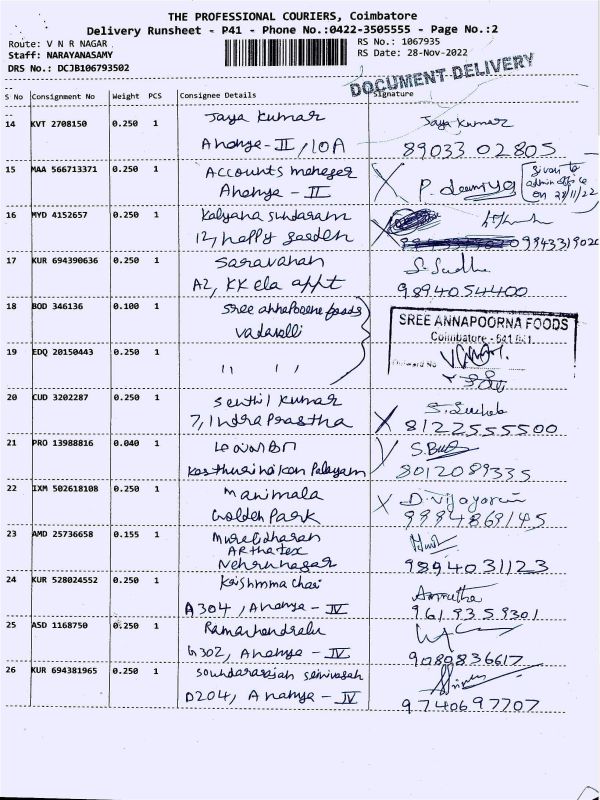 THE PROFESSIONAL COURIERS, Coimbatore
Delivery Runsheet - P41 - Phone No.:0422-3505555 - Page No.:2
Route: V N R NAGAR
Staff: NARAYANASAMY
DRS No.: DCJB106793502
RS No.: 1067935
RS Date: 28-Nov-2022
DOCUMENT DELIVERY
S No Consignment No Weight PCS Consignee Details Signature
14 KVT 2708150 0.250 1 Jaya Kumar Jaya Kumar
Ananya - II, 10A 89033 02805
15 MAA 566713371 0.250 1 Accounts maneger
Ananya - II
Given to
admin office
on 28/11/22
16 MYD 4152657 0.250 1 Kalyana Sundaram
12, happy garden 0994331902
17 KUR 694390636 0.250 1 Saravanan S. Sudha
A2, KK ela appt 9894054400
18 BOD 346136 0.100 1 Sree annapoorne foods
Vadavalli
SREE ANNAPOORNA FOODS
Coimbatore - 641 041.
19 EDQ 20150443 0.250 1 " "
20 CUD 3202287 0.250 1 Senthil Kumar
7, Indra Prastha 8122555500
21 PRO 13988816 0.040 1
Kasthurinaicken Palayam 8012089335
22 IXM 502618108 0.250 1 Manimala
Golden Park 9994869145
23 AMD 25736658 0.155 1 Muralidharan
ARthatex
Nehrunagar 9894031123
24 KUR 528024552 0.250 1 Krishmma Chari Amrutha
A304, Ananya - IV 9619359301
25 ASD 1168750 0.250 1 Ramachendralu
G302, Ananya - IV 9080836617
26 KUR 694381965 0.250 1 Soundararajah Senivasah
D204, Ananya - IV 9740697707